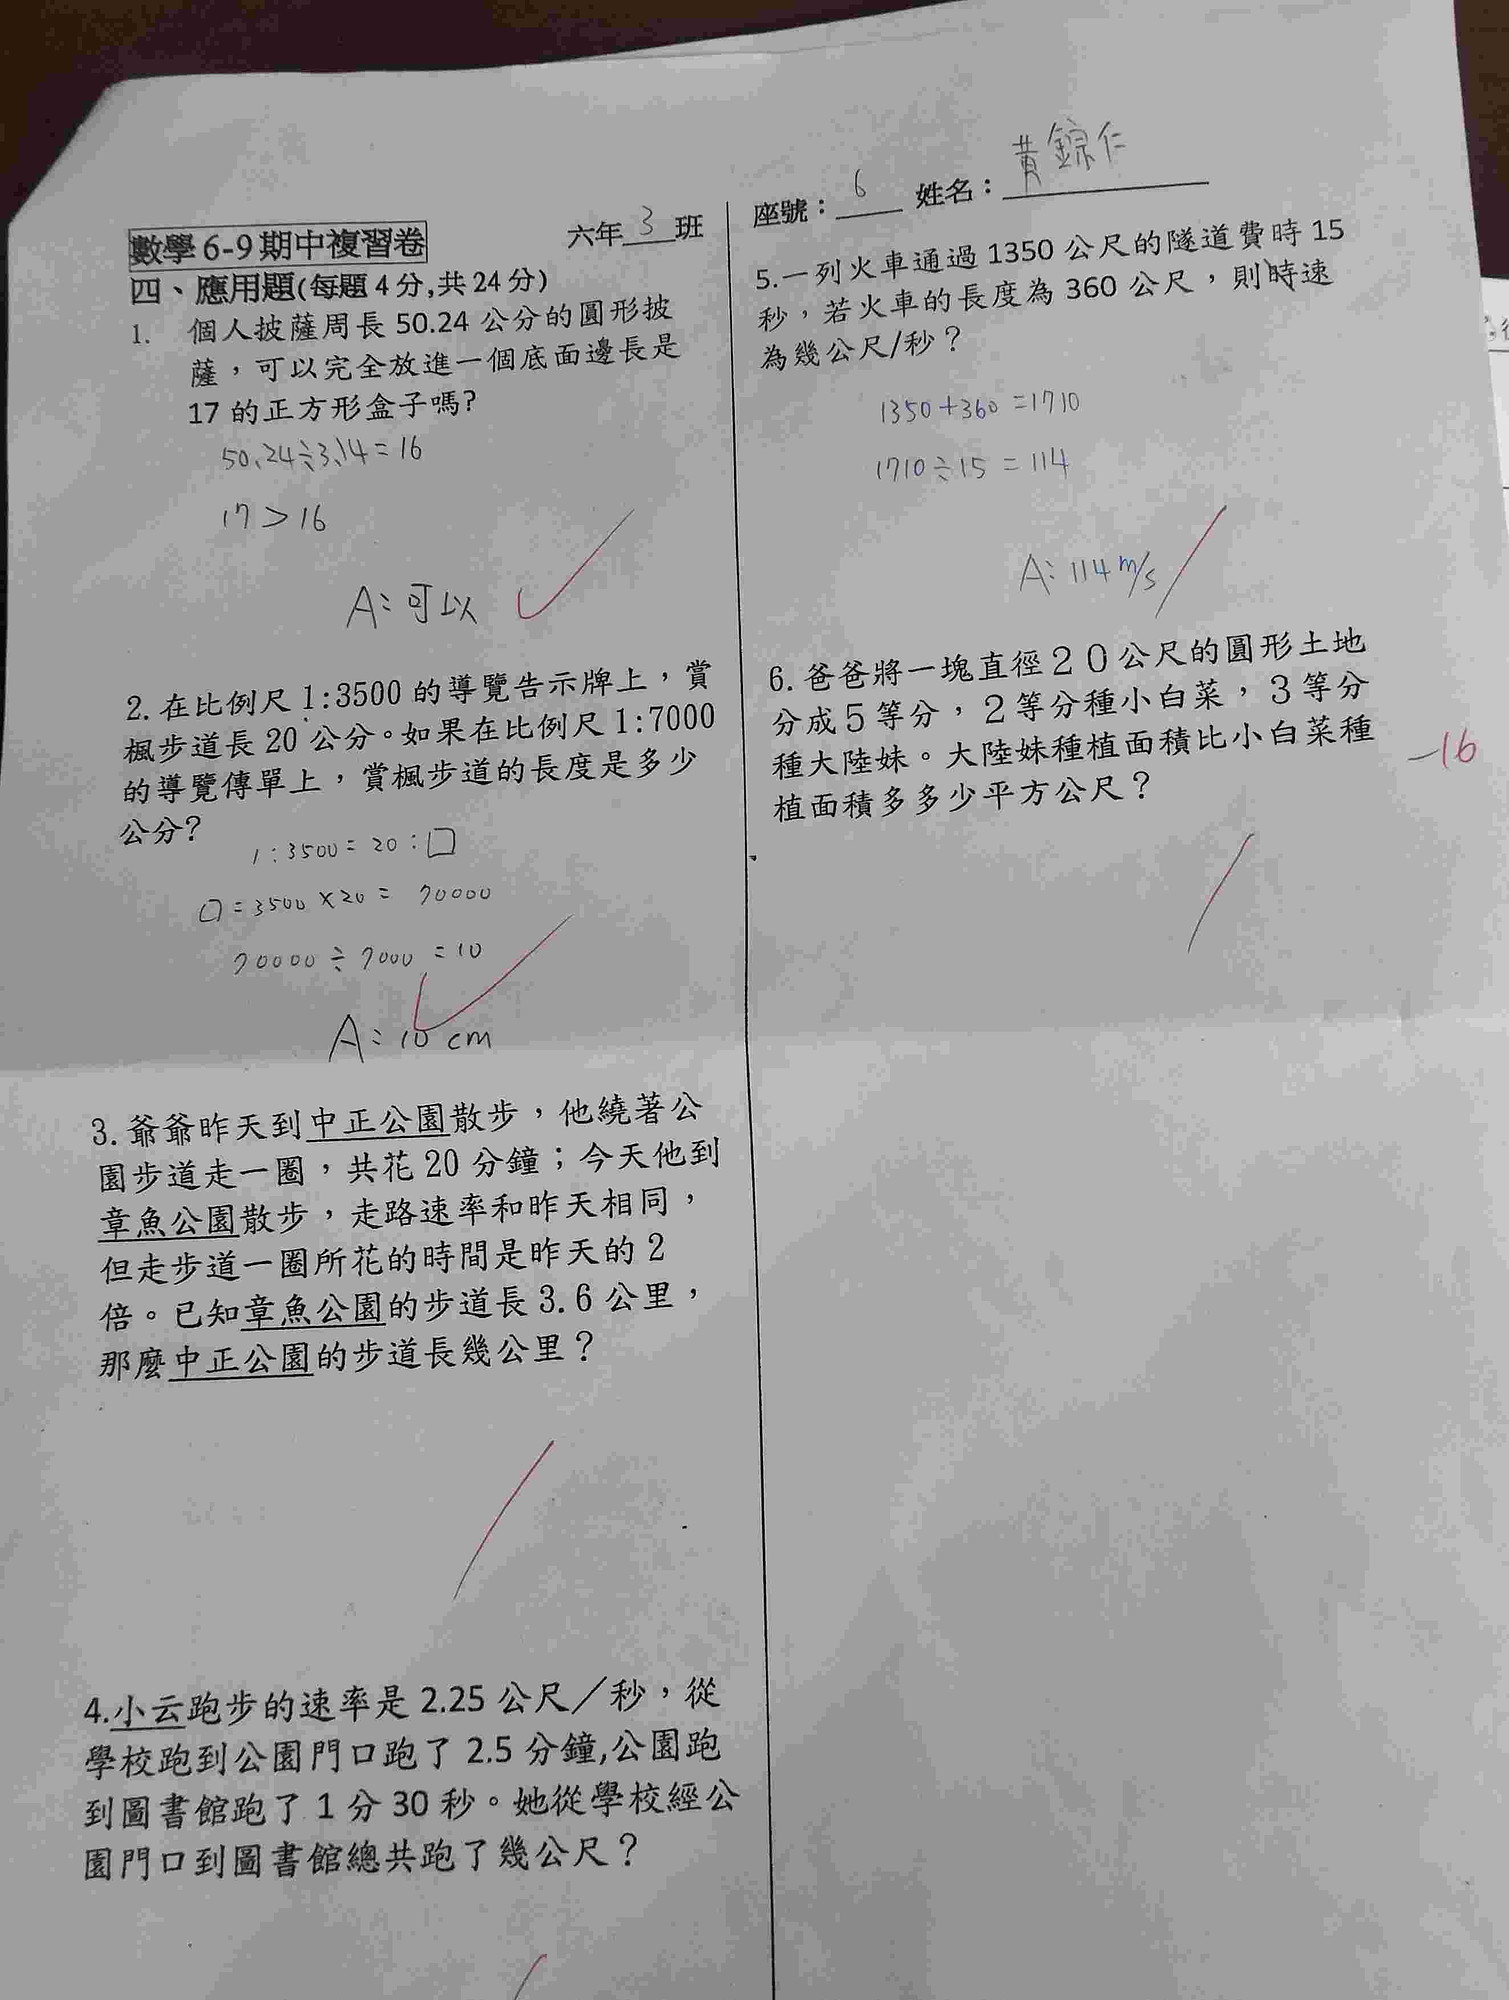 數學 6-9 期中複習卷
六年 3 班
座號：6 姓名：黃錦仁
四、應用題(每題 4 分,共 24 分)
1. 個人披薩周長 50.24 公分的圓形披
薩，可以完全放進一個底面邊長是
17 的正方形盒子嗎?
50.24÷3.14=16
17＞16
A：可以
2. 在比例尺 1:3500 的導覽告示牌上，賞
楓步道長 20 公分。如果在比例尺 1:7000
的導覽傳單上，賞楓步道的長度是多少
公分?
1:3500=20:□
□=3500×20= 70000
70000÷7000=10
A：10 cm
3. 爺爺昨天到中正公園散步，他繞著公
園步道走一圈，共花 20 分鐘；今天他到
章魚公園散步，走路速率和昨天相同，
但走步道一圈所花的時間是昨天的 2
倍。已知章魚公園的步道長 3.6 公里，
那麼中正公園的步道長幾公里？
4.小云跑步的速率是 2.25 公尺／秒，從
學校跑到公園門口跑了 2.5 分鐘,公園跑
到圖書館跑了 1 分 30 秒。她從學校經公
園門口到圖書館總共跑了幾公尺？
5.一列火車通過 1350 公尺的隧道費時 15
秒，若火車的長度為 360 公尺，則時速
為幾公尺/秒？
1350+360=1710
1710÷15=114
A：114 m/s
6. 爸爸將一塊直徑２０公尺的圓形土地
分成５等分，２等分種小白菜，３等分
種大陸妹。大陸妹種植面積比小白菜種
植面積多多少平方公尺？
-16